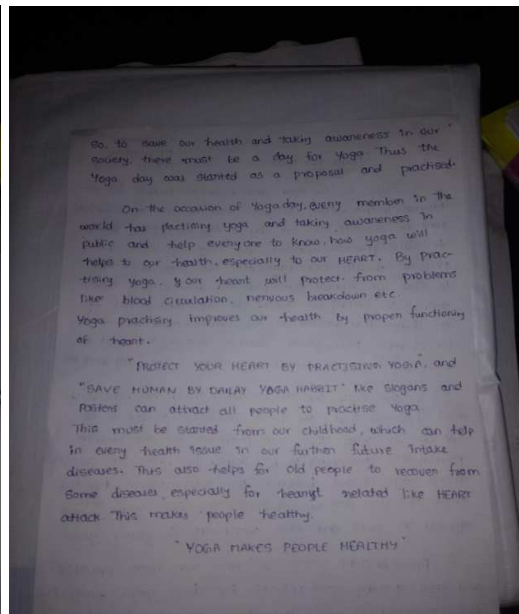 So, to save our health and taking awareness in our
society, there must be a day for Yoga. Thus the
Yoga day was started as a proposal and practised.
On the occasion of Yoga day, every member in the
world has practising yoga and taking awareness in
public and help everyone to know, how yoga will
helps to our health, especially to our HEART. By prac-
tising yoga, your heart will protect from problems
like blood circulation, nervous breakdown etc
Yoga practising improves our health by proper functioning
of heart.
"PROTECT YOUR HEART BY PRACTISING YOGA", and
"SAVE HUMAN BY DAILAY YOGA HABBIT" like slogans and
Posters can attract all people to practise Yoga
This must be started from our childhood, which can help
in every health issue in our further future intake
diseases. This also helps for old people to recover from
Some diseases, especially for related like HEART
attack. This makes people healthy.
"YOGA MAKES PEOPLE HEALTHY"